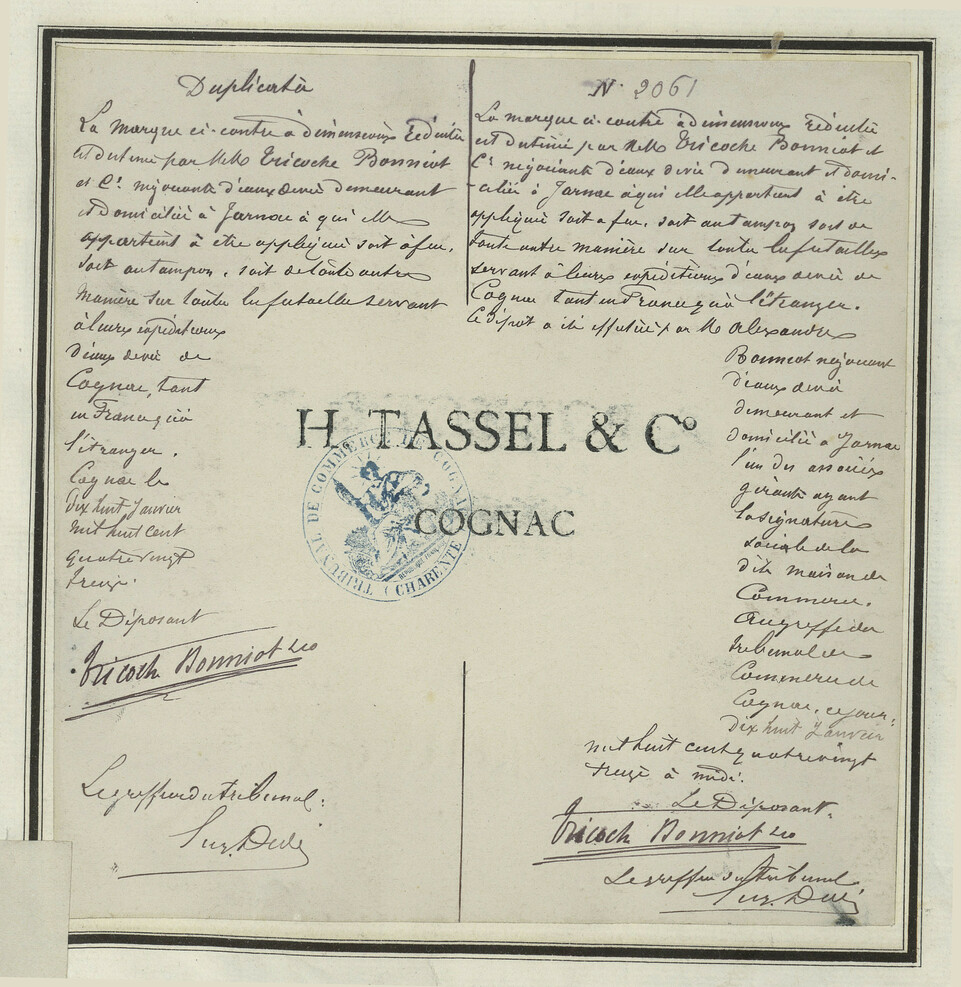 Duplicata
La marque ci-contre à dimensions réduites
est destinée par MM Tricoche Bonniot
et Cie négociants d'eaux de vie demeurant
et domiciliés à Jarnac à qui elle
appartient à être appliquée soit à feu,
soit au tampon, soit de toute autre
manière sur toutes les futailles servant
à leurs expéditions
d'eaux de vie de
Cognac, tant
en France qu'à
l'étranger.
Cognac le
dix huit Janvier
mil huit cent
quatre vingt
treize.
Le Déposant
Tricoche Bonniot & Co
Le greffier du tribunal:
N° 2061
La marque ci-contre à dimensions réduites
est destinée par MM Tricoche Bonniot et
Cie négociants d'eaux de vie demeurant et domi-
-ciliés à Jarnac à qui elle appartient à être
appliquée soit à feu, soit au tampon soit de
toute autre manière sur toutes les futailles
servant à leurs expéditions d'eaux de vie de
Cognac tant en France qu'à l'étranger.
Ce dépôt a été effectué par M Alexandre
Bonniot négociant
d'eaux de vie
demeurant et
domicilié à Jarnac
l'un des associés
gérants ayant
la signature
sociale de la
dite maison de
Commerce,
au greffe du
tribunal de
Commerce de
Cognac, ce jour:
dix huit Janvier
mil huit cent quatre vingt
treize à midi.
Le Déposant.
Tricoche Bonniot & Co
Le greffier du tribunal
H. TASSEL & Co
COGNAC
TRIBUNAL DE COMMERCE DE COGNAC
(CHARENTE)